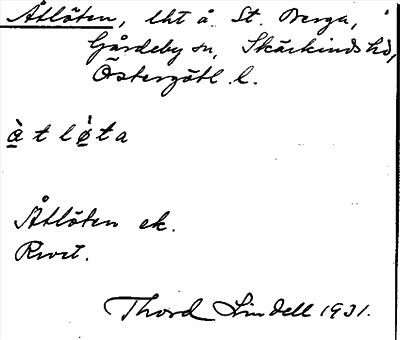 Åtlöten, lht å St. Berga,
Gårdeby sn, Skärkinds hd,
Östergötl. l.
àtlø̀ta
Åtlöten ek.
Thord Lindell 1931.